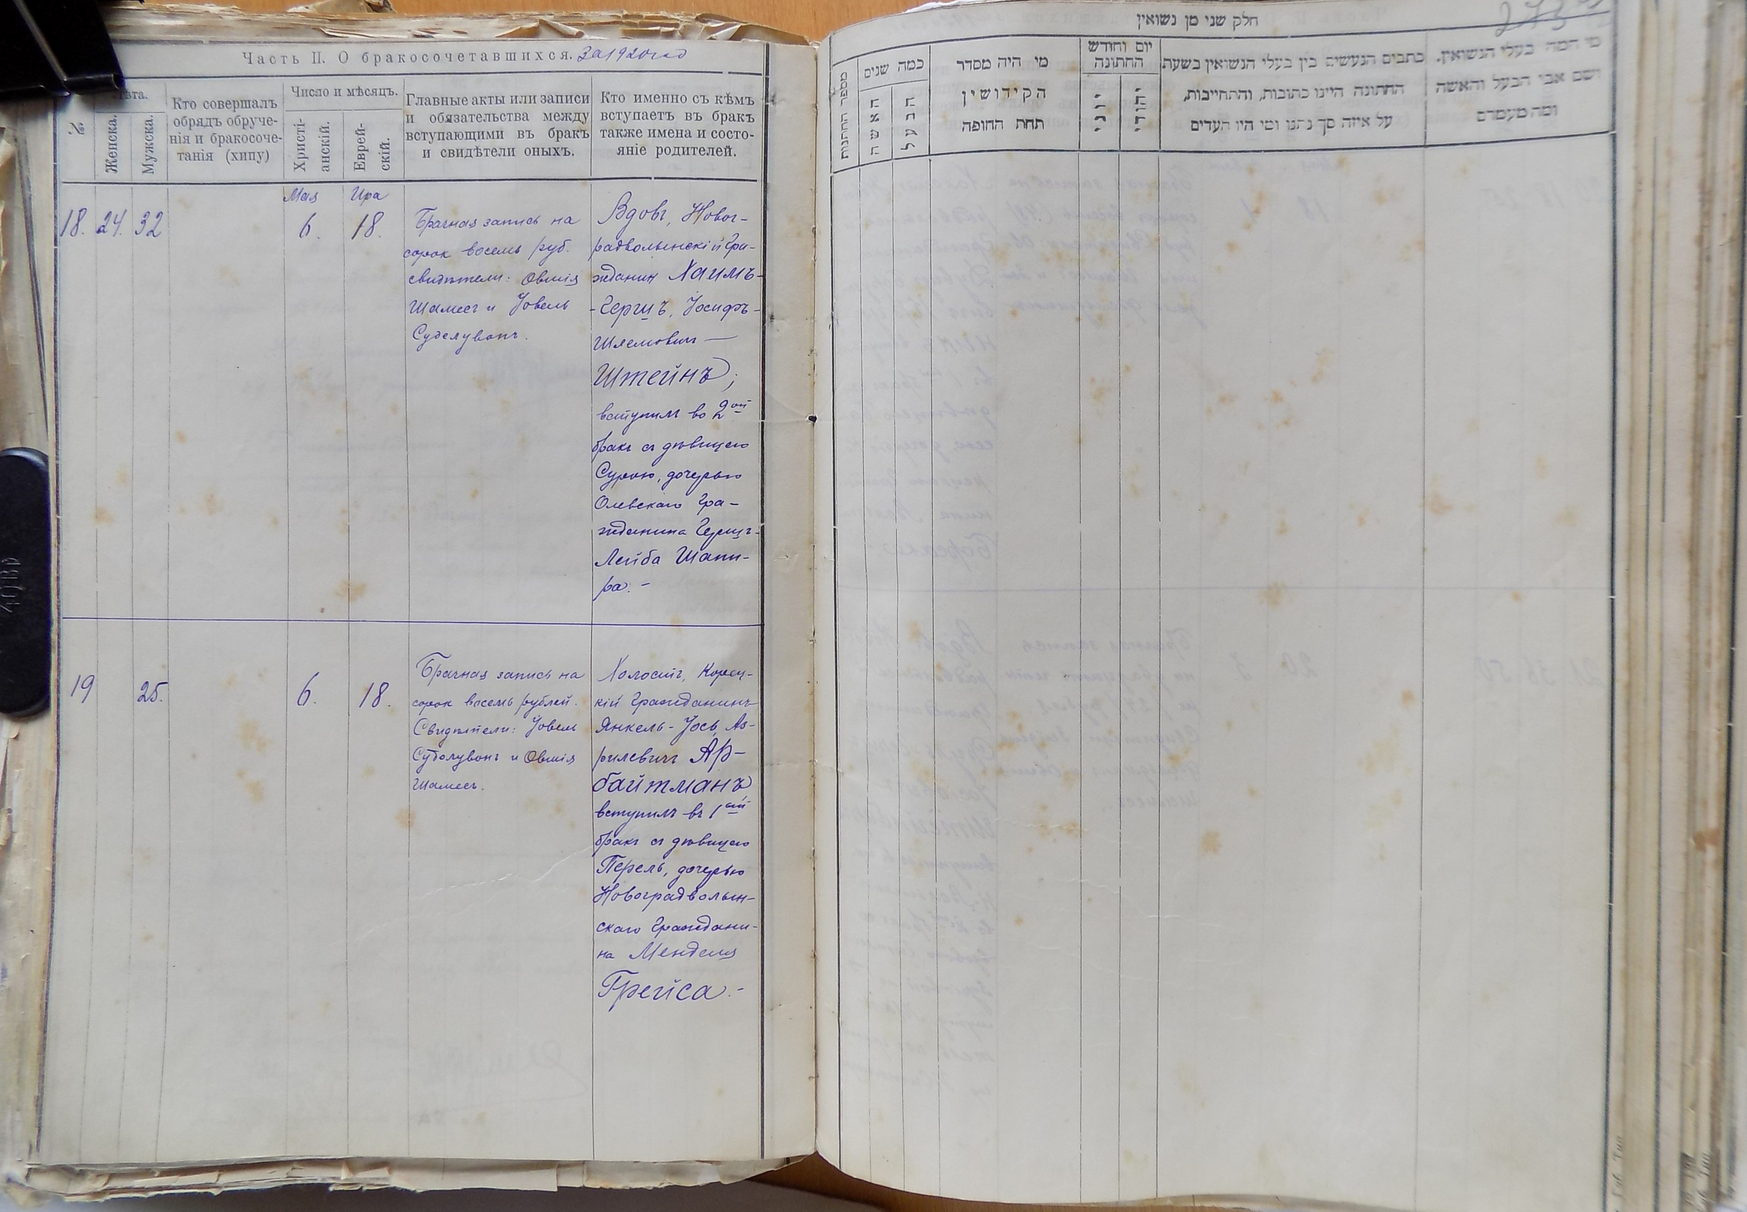 Часть II. О бракосочетавшихся. За 1920 год
№
Лѣта.
Женска.
Мужска.
Кто совершалъ
обрядъ обруче-
нія и бракосоче-
танія (хипу)
Число и мѣсяцъ.
Христі-
анскій.
Еврей-
скій.
Главные акты или записи
и обязательства между
вступающими въ бракъ
и свидѣтели оныхъ.
Кто именно съ кѣмъ
вступаетъ въ бракъ
также имена и состо-
яніе родителей.
Мая Ира
18. 24. 32
6. 18.
Брачная запись на
сорок восемь руб.
свидѣтели: Овшія
Шамес и Іовель
Вдовъ, Новог-
радволынскій Гра-
жданин Хаимъ-
-Герцъ, Іосифъ-
Шлемович —
Штейнъ;
вступилъ во 2ой
бракъ съ дѣвицею
Сурою, дочерью
Олевскаго Гра-
жданина Герцъ-
Лейба Шапи-
ра. –
19 25.
6. 18.
Брачная запись на
сорок восемь рублей.
Свидѣтели: Іовель
и Овшія
Шамес.
Холостъ, Корец-
кій Гражданинъ
Янкель-Іось, Аз-
рилевич Ар-
байтманъ
вступилъ въ 1ый
бракъ съ дѣвицею
Перель, дочерью
Новоградволын-
скаго Граждани-
на Менделя
Грейса. –
חלק שני מן נשואין
מספר החתונות
כמה שנים
האשה
הבעל
מי היה מסדר
הקידושין
תחת החופה
יום וחודש
החתונה
יוני
יהודי
כתבים הנעשים בין בעלי הנשואין בשעת
החתונה היינו כתובות, והתחייבות,
על איזה סך נתנו ומי היו העדים
מי המה בעלי הנשואין.
ושם אבי הבעל והאשה
ומה מעמדם